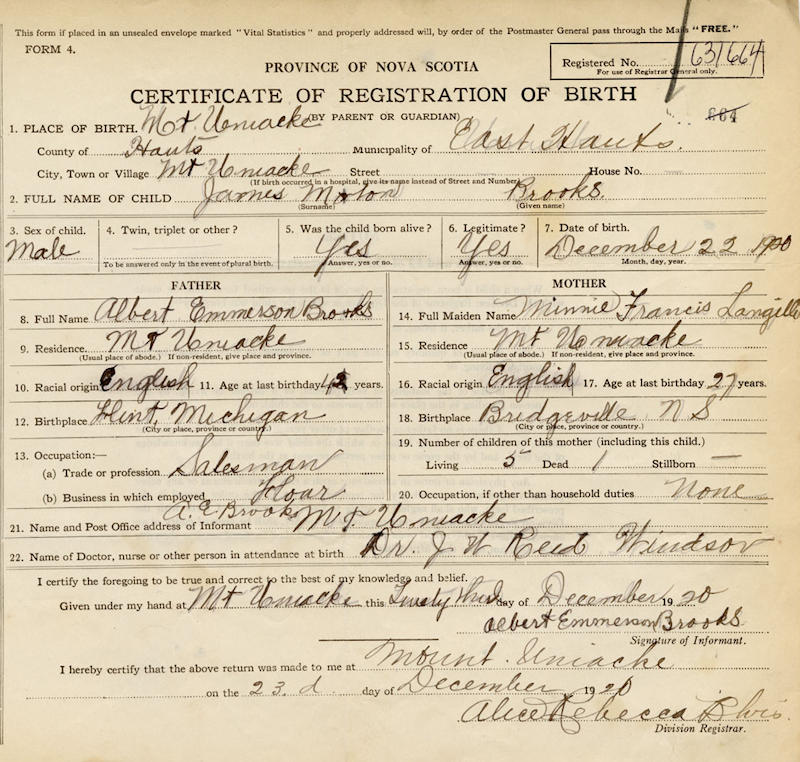 This form if placed in an unsealed envelope marked "Vital Statistics" and properly addressed will, by order of the Postmaster General pass through the Mails "FREE."
FORM 4.
Registered No. 631664
For use of Registrar General only.
PROVINCE OF NOVA SCOTIA
CERTIFICATE OF REGISTRATION OF BIRTH
(BY PARENT OR GUARDIAN)
1. PLACE OF BIRTH. Mt Uniacke
County of Hants Municipality of East Hants.
City, Town or Village Mt Uniacke Street House No.
(If birth occurred in a hospital, give its name instead of Street and Number)
2. FULL NAME OF CHILD James Brooks.
(Surname) (Given name)
3. Sex of child. 4. Twin, triplet or other? 5. Was the child born alive? 6. Legitimate? 7. Date of birth.
Male Yes Yes December 22 1920
To be answered only in the event of plural birth. Answer, yes or no. Answer, yes or no. Month, day, year.
FATHER
8. Full Name Albert Emmerson Brooks
9. Residence. Mt Uniacke
(Usual place of abode.) If non-resident, give place and province.
10. Racial origin English 11. Age at last birthday 42 years.
12. Birthplace Flint, Michigan
(City or place, province or country.)
13. Occupation:—
(a) Trade or profession Salesman
(b) Business in which employed Floar
MOTHER
14. Full Maiden Name Minnie Francis Langille
15. Residence Mt Uniacke
(Usual place of abode.) If non-resident, give place and province.
16. Racial origin English 17. Age at last birthday 27 years.
18. Birthplace Bridgeville N S
(City or place, province or country.)
19. Number of children of this mother (including this child.)
Living 5 Dead 1 Stillborn —
20. Occupation, if other than household duties None
21. Name and Post Office address of Informant A. E. Brooks Mt. Uniacke
22. Name of Doctor, nurse or other person in attendance at birth Dr. J W Reid Windsor
I certify the foregoing to be true and correct to the best of my knowledge and belief.
Given under my hand at Mt Uniacke this Twenty third day of December 1920
Albert Emmerson Brooks
Signature of Informant.
I hereby certify that the above return was made to me at Mount. Uniacke
on the 23.d. day of December 1920
Alice Rebecca
Division Registrar.